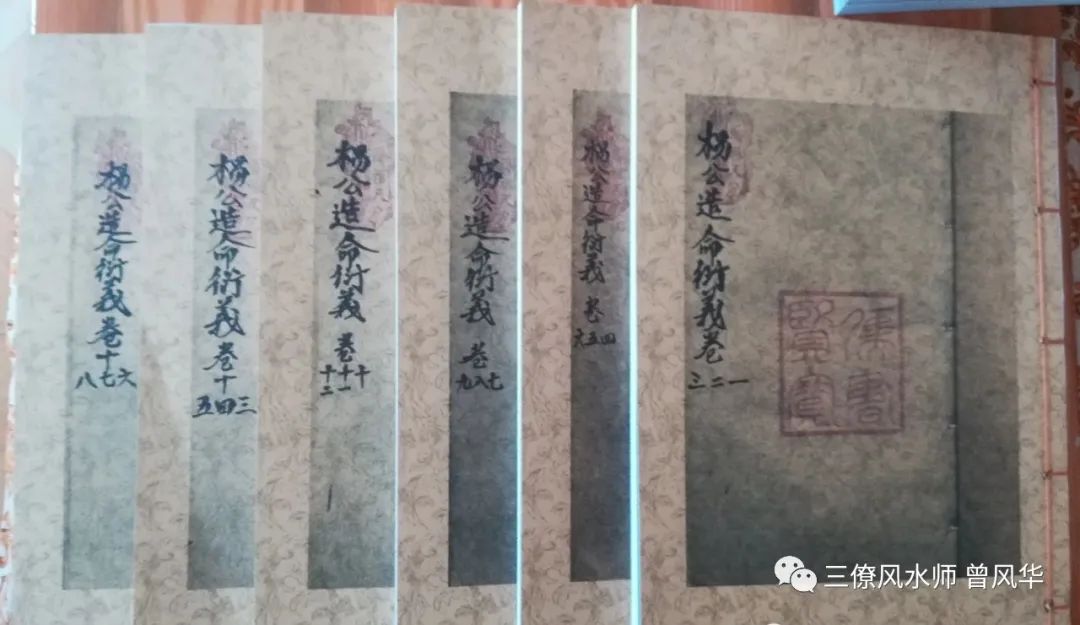 杨公造命衍義卷
一二三
杨公造命衍義卷
四五六
杨公造命衍義卷
七八九
杨公造命衍義卷
十
十一
十二
杨公造命衍義卷十
三四五
杨公造命衍義卷十
六七八
三僚风水师 曾风华